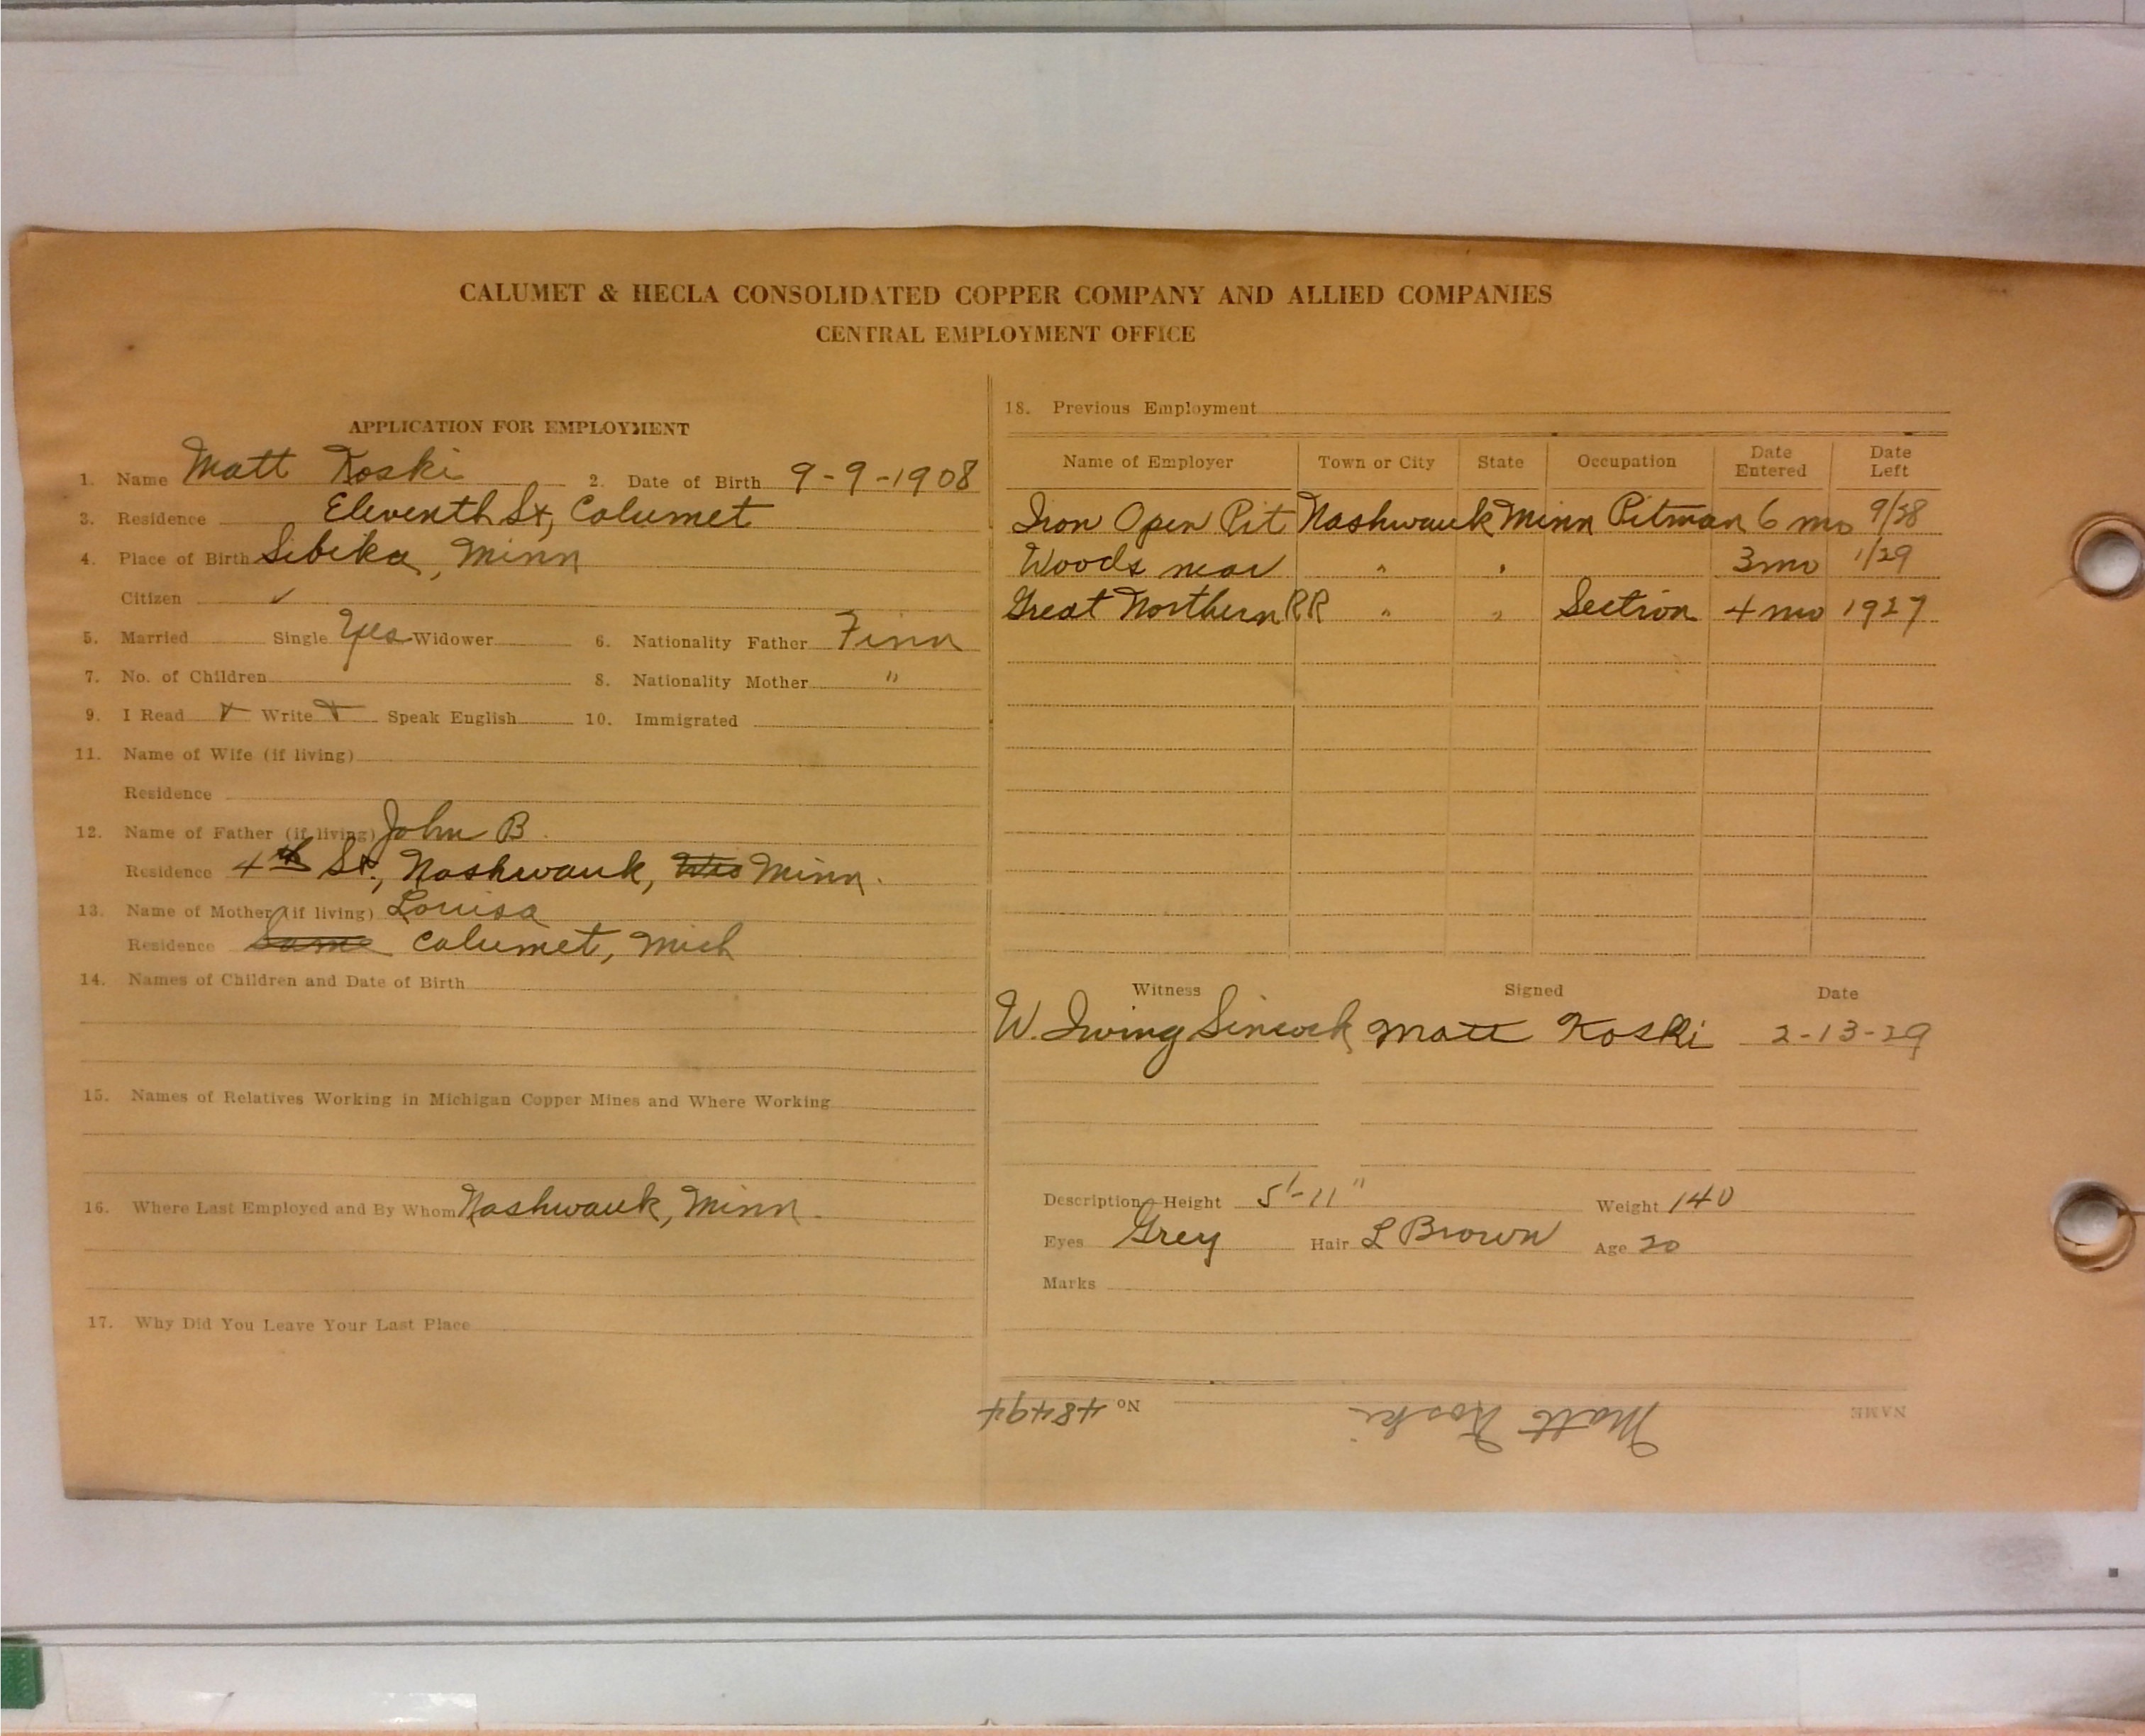 CALUMET & HECLA CONSOLIDATED COPPER COMPANY AND ALLIED COMPANIES
CENTRAL EMPLOYMENT OFFICE
APPLICATION FOR EMPLOYMENT
1. Name Matt Koski 2. Date of Birth 9-9-1908
3. Residence Eleventh St, Calumet
4. Place of Birth Sebeka, Minn
Citizen ✓
5. Married Single Yes Widower 6. Nationality Father Finn
7. No. of Children 8. Nationality Mother "
9. I Read Write Speak English 10. Immigrated
11. Name of Wife (if living)
Residence
12. Name of Father (if living) John B
Residence 4th St., Nashwauk, Wis Minn.
13. Name of Mother (if living) Louisa
Residence Same Calumet, Mich
14. Names of Children and Date of Birth
15. Names of Relatives Working in Michigan Copper Mines and Where Working
16. Where Last Employed and By Whom Nashwauk, Minn.
17. Why Did You Leave Your Last Place
18. Previous Employment
Name of Employer Town or City State Occupation Date Entered Date Left
Iron Open Pit Nashwauk Minn Pitman 6 mo 9/28
Woods near " " 3 mo 1/29
Great Northern RR " " Section 4 mo 1927
Witness Signed Date
W. Irving Sincock Matt Koski 2-13-29
Description—Height 5'-11" Weight 140
Eyes Grey Hair L Brown Age 20
Marks
NAME Matt Koski No 48494